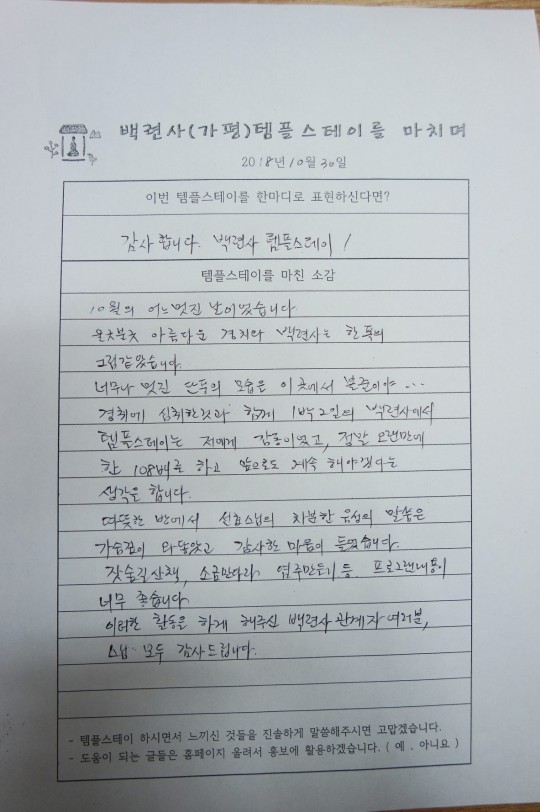 백련사(가평)템플스테이를 마치며
2018년 10월 30일
이번 템플스테이를 한마디로 표현하신다면?
감사합니다. 백련사 템플스테이!
템플스테이를 마친 소감
10월의 어느 멋진 날이었습니다.
울긋불긋 아름다운 경치와 백련사는 한 폭의
그림같았습니다.
너무나 멋진 단풍의 모습은 이 곳에서
경치에 심취한것과 함께 1박2일의 백련사에서
템플스테이는 저에게 감동이었고, 정말 오랜만에
한 108배를 하고 앞으로도 계속 해야겠다는
생각을 합니다.
따뜻한 방에서 선효스님의 차분한 음성의 말씀은
가슴깊이 와 닿았고 감사한 마음이 들었습니다.
잣숲길산책, 소금만다라, 염주만들기 등 프로그램내용이
너무 좋습니다.
이러한 활동을 하게 해주신 백련사 관계자 여러분,
스님 모두 감사드립니다.
- 템플스테이 하시면서 느끼신 것들을 진솔하게 말씀해주시면 고맙겠습니다.
- 도움이 되는 글들은 홈페이지 올려서 홍보에 활용하겠습니다. ( 예 , 아니요 )